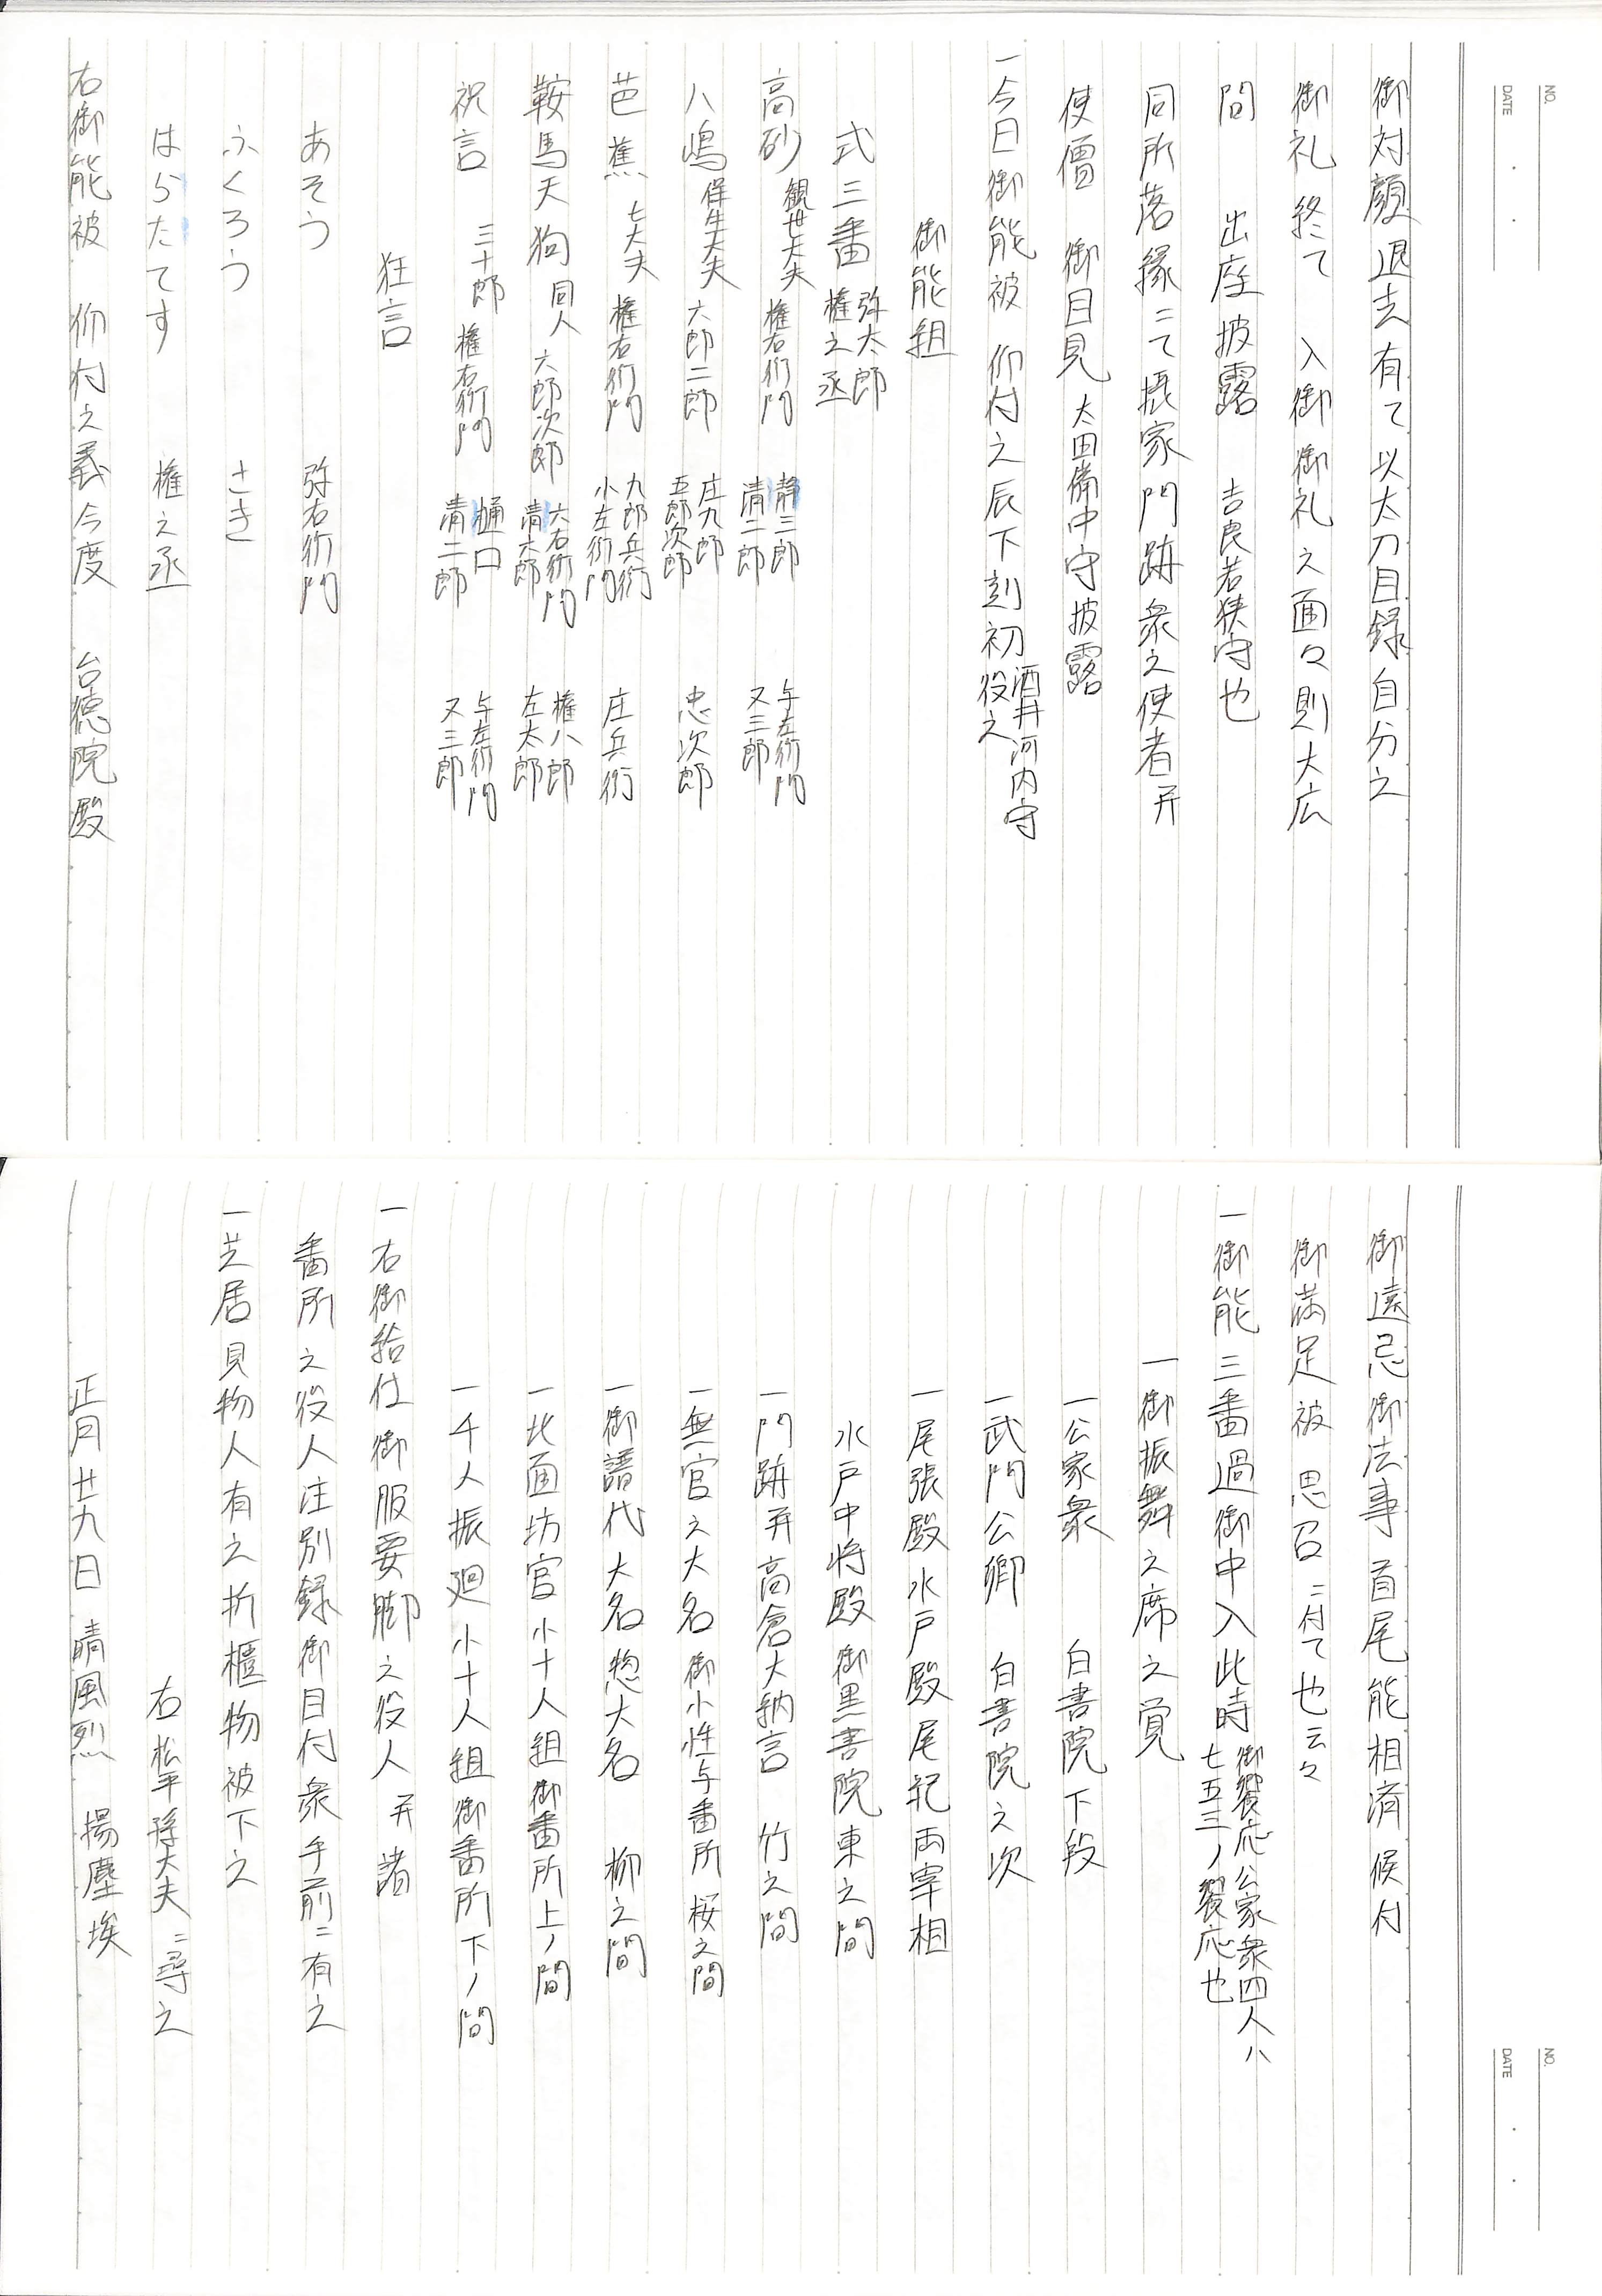 NO.
DATE
御対顔退去有て以太刀目録自分之
御礼終て 入御御礼之面々則大広
間 出座披露 吉良若狭守也
同所落縁ニて摂家門跡衆之使者并
使僧 御目見太田備中守披露
一今日御能被 仰付之辰下刻初酒井河内守役之
御能組
式三番 弥太郎 権之丞
高砂 観世大夫 権右衛門 静三郎 清二郎 与左衛門 又三郎
八嶋 保生大夫 六郎二郎 庄九郎 五郎次郎 忠次郎
芭蕉 七大夫 権右衛門 九郎兵衛 小左衛門 庄兵衛
鞍馬天狗 同人 六郎次郎 六右衛門 清六郎 権八郎 左太郎
祝言 三十郎 権右衛門 樋口 清二郎 与左衛門 又三郎
狂言
あそう 弥右衛門
ふくろう さき
はらたてす 権之丞
右御能被 仰付之義今度 台徳院殿
NO.
DATE
御遠忌御法事首尾能相済候付
御満足被 思召ニ付て也云々
一御能三番過御中入此時御饗応公家衆四人ハ七五三ノ饗応也
一御振舞之席之覚
一公家衆 白書院下段
一武門公卿 白書院之次
一尾張殿水戸殿尾紀両宰相
水戸中将殿御黒書院東之間
一門跡并高倉大納言 竹之間
一無官之大名御小性与番所桜之間
一御譜代大名惣大名 柳之間
一北面坊官小十人組御番所上ノ間
一千人振廻小十人組御番所下ノ間
一右御給仕御服要脚之役人并諸
番所之役人注別録御目付衆手前ニ有之
一芝居見物人有之折櫃物被下之
右松平隼大夫ニ尋之
正月廿九日晴風烈 揚塵埃